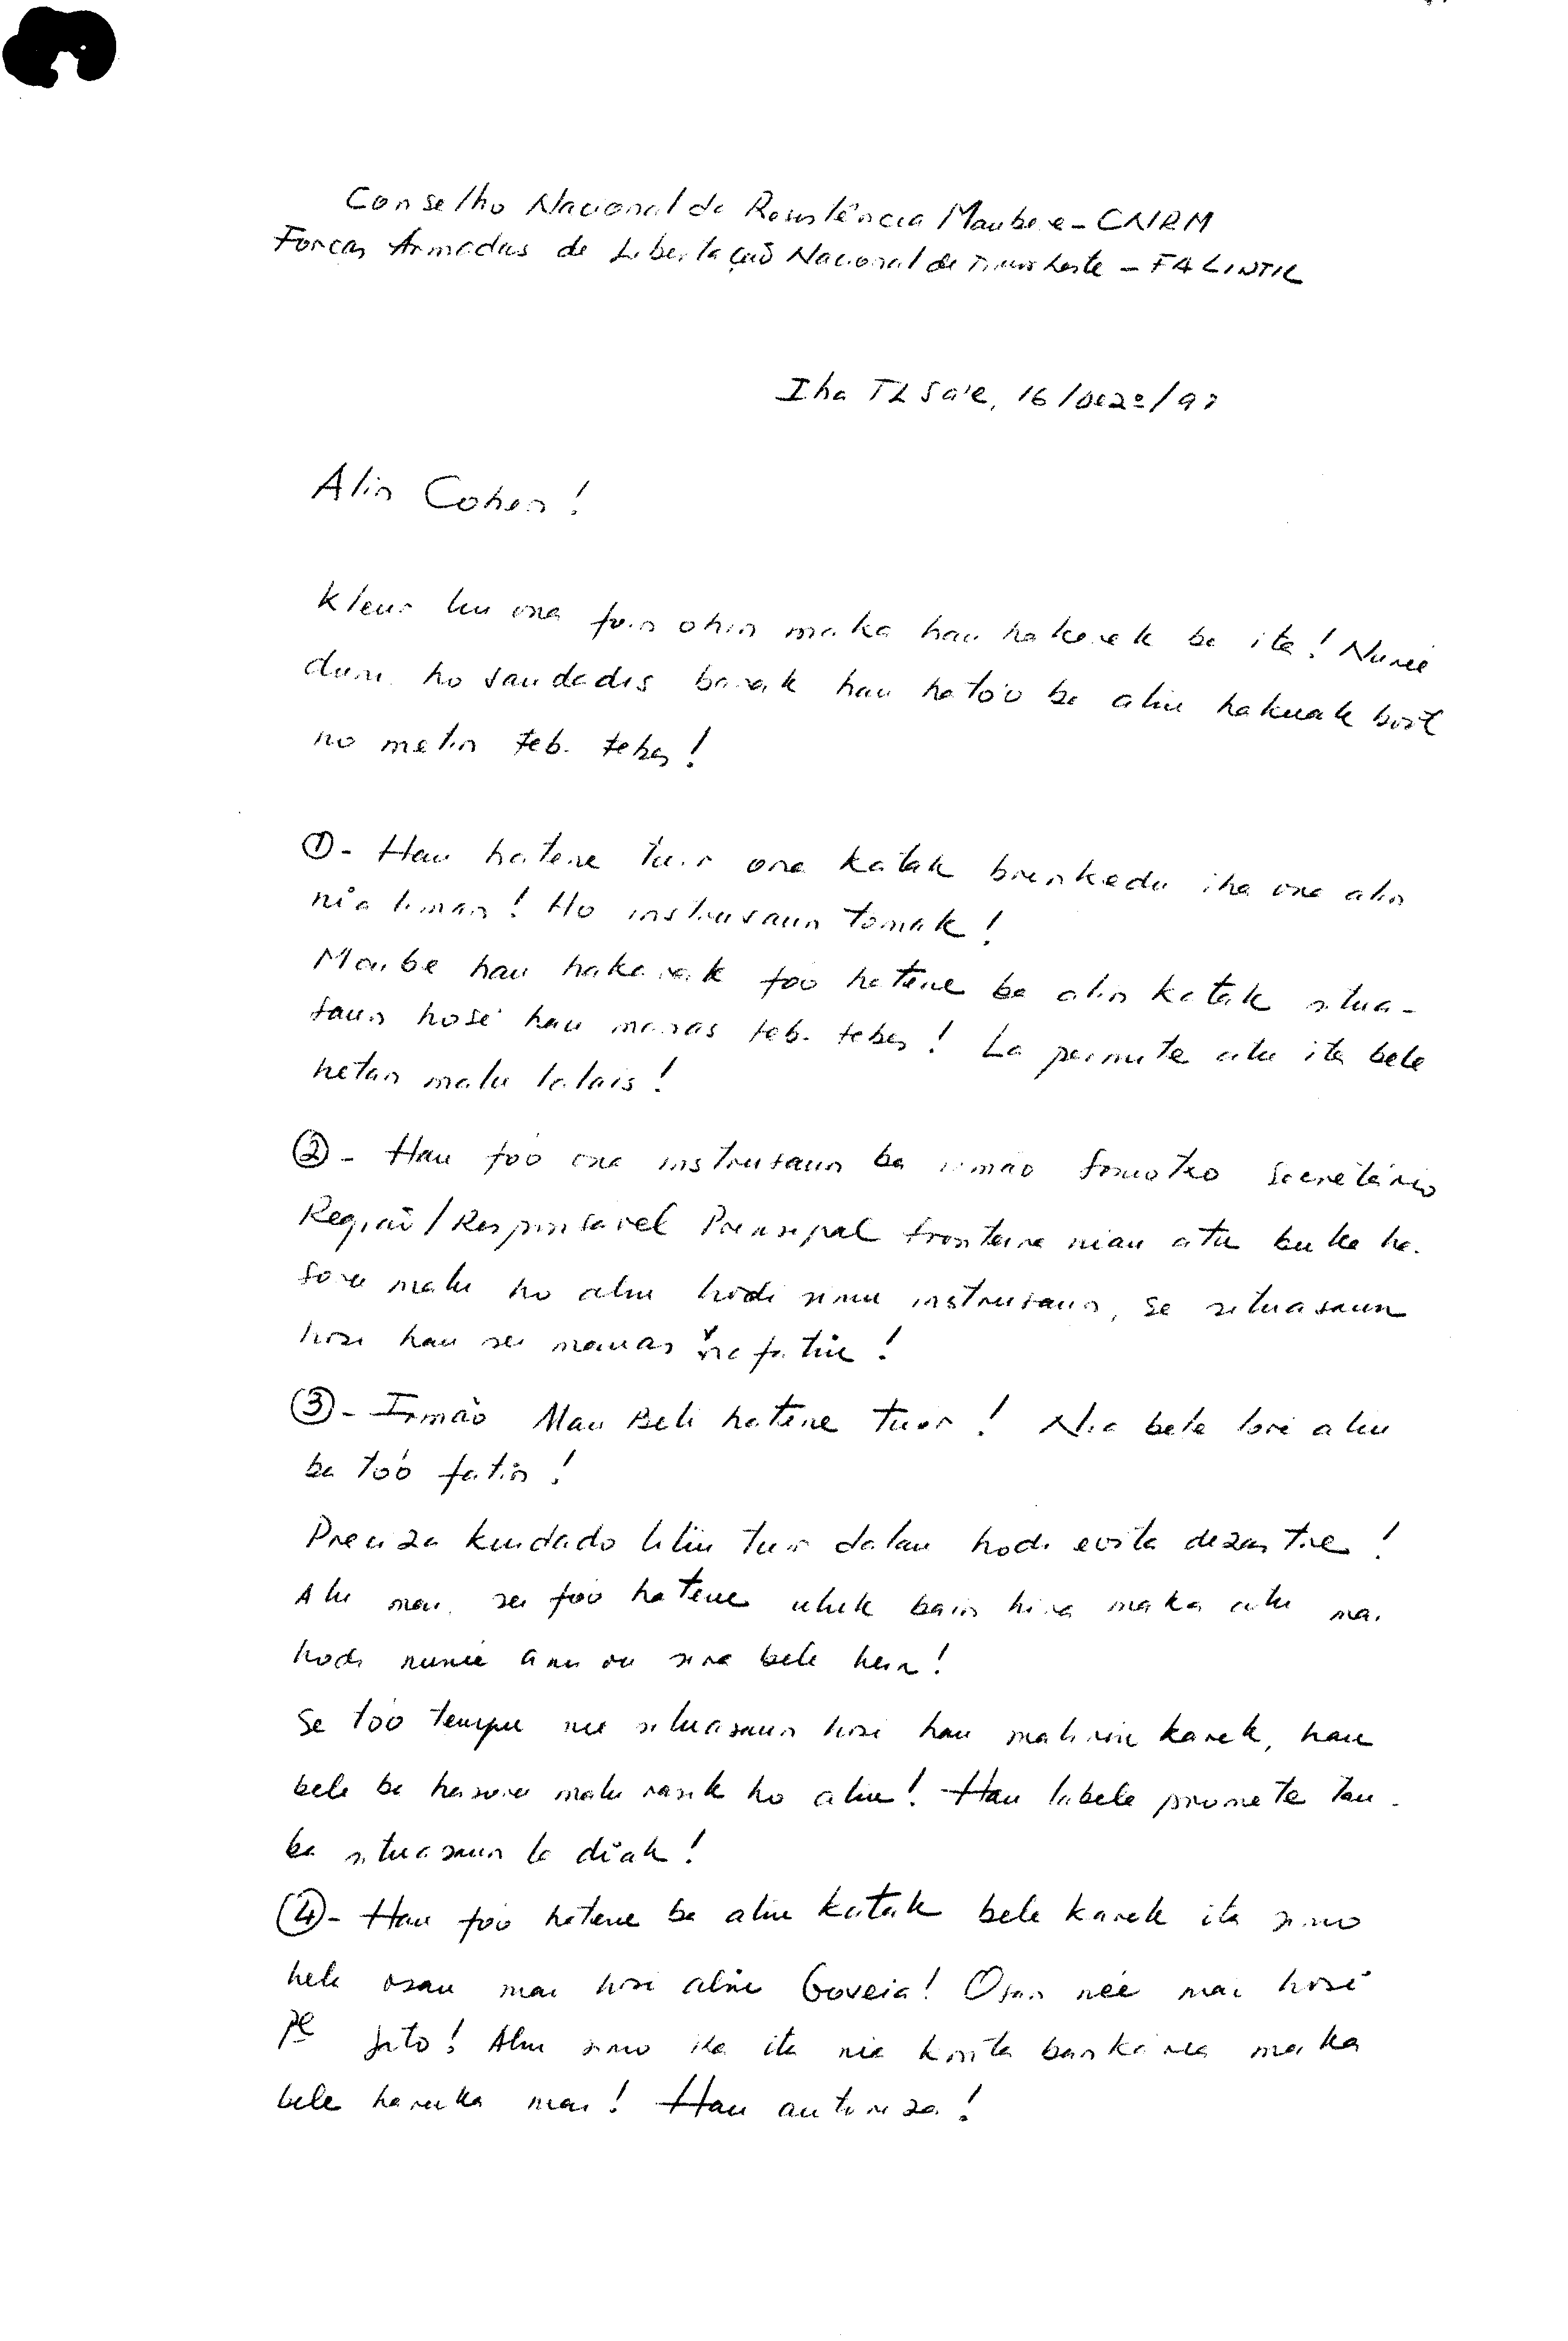 Conselho Nacional da Resistência Maubere - CNRM
Forças Armadas de Libertação Nacional de Timor Leste - FALINTIL
Iha TL Sa'e, 16/Dezº/97
Alin Cohen!
Kleur liu ona foin ohin maka hau hakerek ba ita! Nunee
duni ho saudades barak hau hato'o ba alin hakuak boot
no metin teb-tebes!
① - Hau hatene tuir ona katak brinkedu iha ona alin
nia liman! Ho instrusaun tomak!
Maibe hau hakarak foo hatene ba alin katak situa-
saun hosi hau manas teb-tebes! La permite atu ita bele
hetan malu lalais!
② - Hau foo ona instrusaun ba irmão Somotxo Secretário
Região/Responsavel Prinsipal fronteira nian atu buka ha-
soru malu ho alin hodi simu instrusaun, se situasaun
hosi hau sei manas nafatin!
③ - Irmão Mau Beli hatene tuir! Nia bele lori alin
ba to'o fatin!
Presiza kuidado liliu tuir dalan hodi evita dezastre!
Atu mai, sei foo hatene uluk bain hira maka atu mai
hodi nunee ami sira bele hein!
Se to'o tempu nee situasaun hosi hau malirin karik, hau
bele ba hasoru malu rasik ho alin! Hau labele promete tan-
ba situasaun la diak!
④ - Hau foo hatene ba alin katak bele karik ita simo
hela osan mai hosi alin Goveia! Osan nee mai hosi
Pe Jito! Alin simo iha ita nia konta bankária maka
bele haruka mai! Hau autoriza!